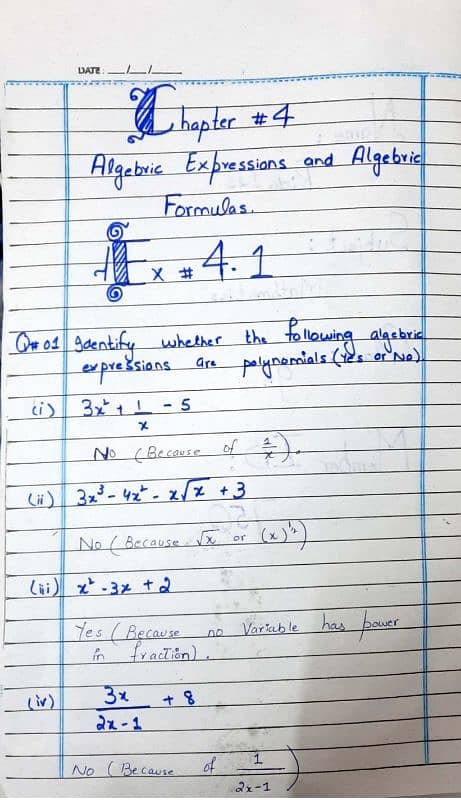 DATE: __/__/____
Chapter #4
Algebric Expressions and Algebric
Formulas.
Ex # 4.1
Q#01 Identify whether the following algebric
expressions are polynomials (Yes or No).
(i) 3x² + 1/x - 5
No (Because of 1/x).
(ii) 3x³ - 4x² - x√x + 3
No (Because √x or (x)^1/2)
(iii) x² - 3x + 2
Yes (Because no Variable has power
in fraction).
(iv) 3x/(2x-1) + 8
No (Because of 1/(2x-1))